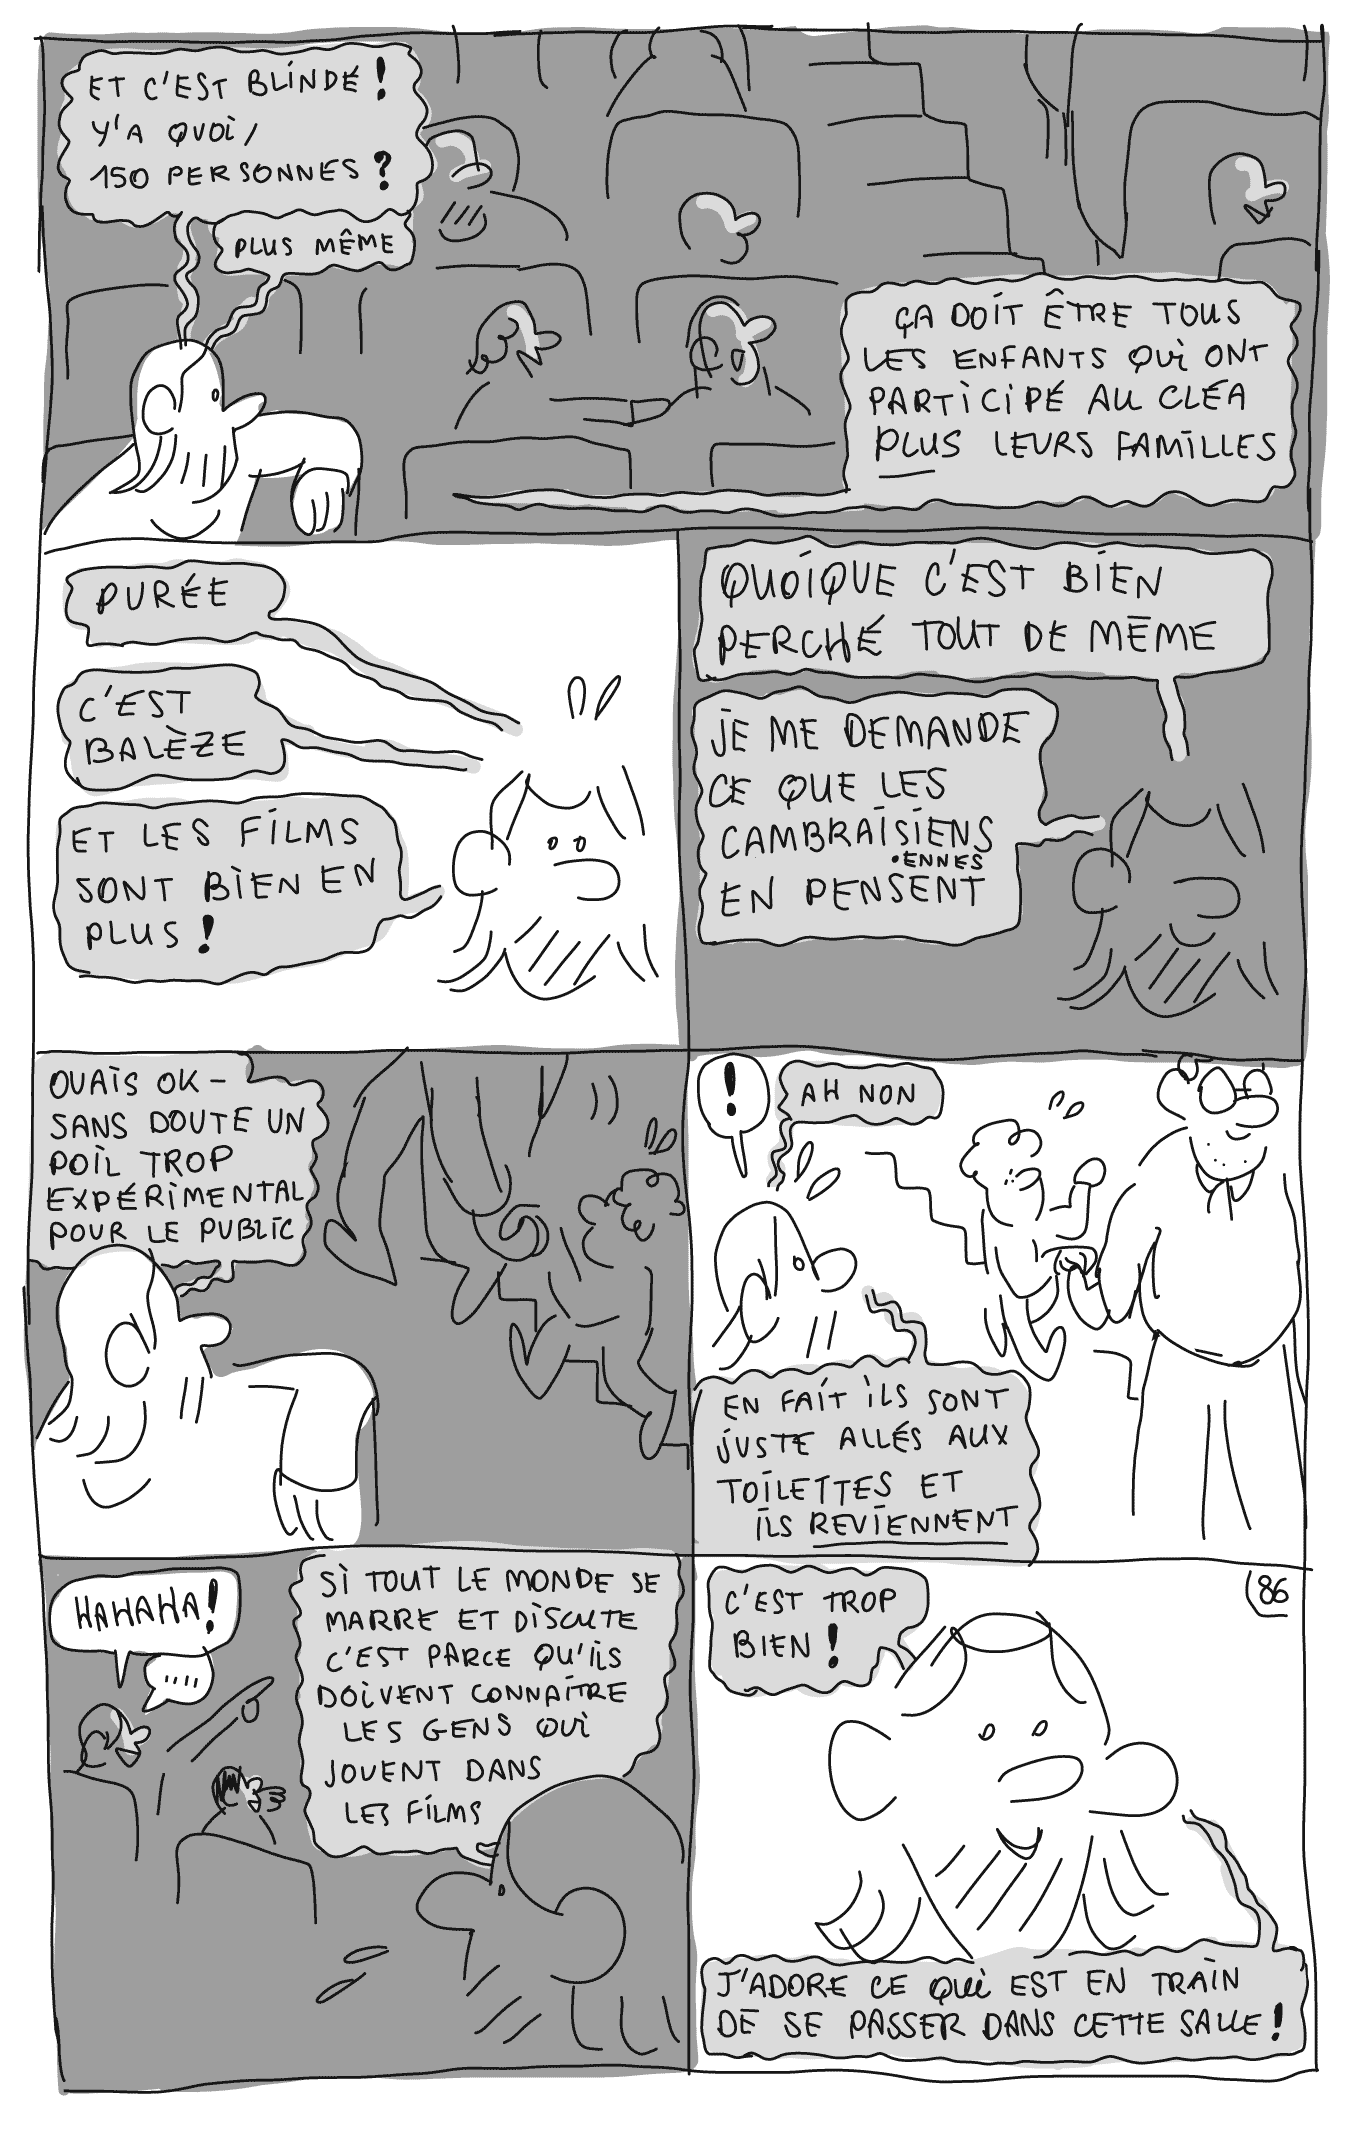 ET C'EST BLINDÉ !
Y'A QUOI,
150 PERSONNES ?
PLUS MÊME
ÇA DOIT ÊTRE TOUS
LES ENFANTS QUI ONT
PARTICIPÉ AU CLÉA
PLUS LEURS FAMILLES
PURÉE
C'EST
BALÈZE
ET LES FILMS
SONT BIEN EN
PLUS !
QUOIQUE C'EST BIEN
PERCHÉ TOUT DE MÊME
JE ME DEMANDE
CE QUE LES
CAMBRAISIENS
•ENNES
EN PENSENT
OUAIS OK -
SANS DOUTE UN
POIL TROP
EXPÉRIMENTAL
POUR LE PUBLIC
!
AH NON
EN FAIT ILS SONT
JUSTE ALLÉS AUX
TOILETTES ET
ILS REVIENNENT
HAHAHA !
....
SI TOUT LE MONDE SE
MARRE ET DISCUTE
C'EST PARCE QU'ILS
DOIVENT CONNAITRE
LES GENS QUI
JOUENT DANS
LES FILMS
C'EST TROP
BIEN !
86
J'ADORE CE QUI EST EN TRAIN
DE SE PASSER DANS CETTE SALLE !